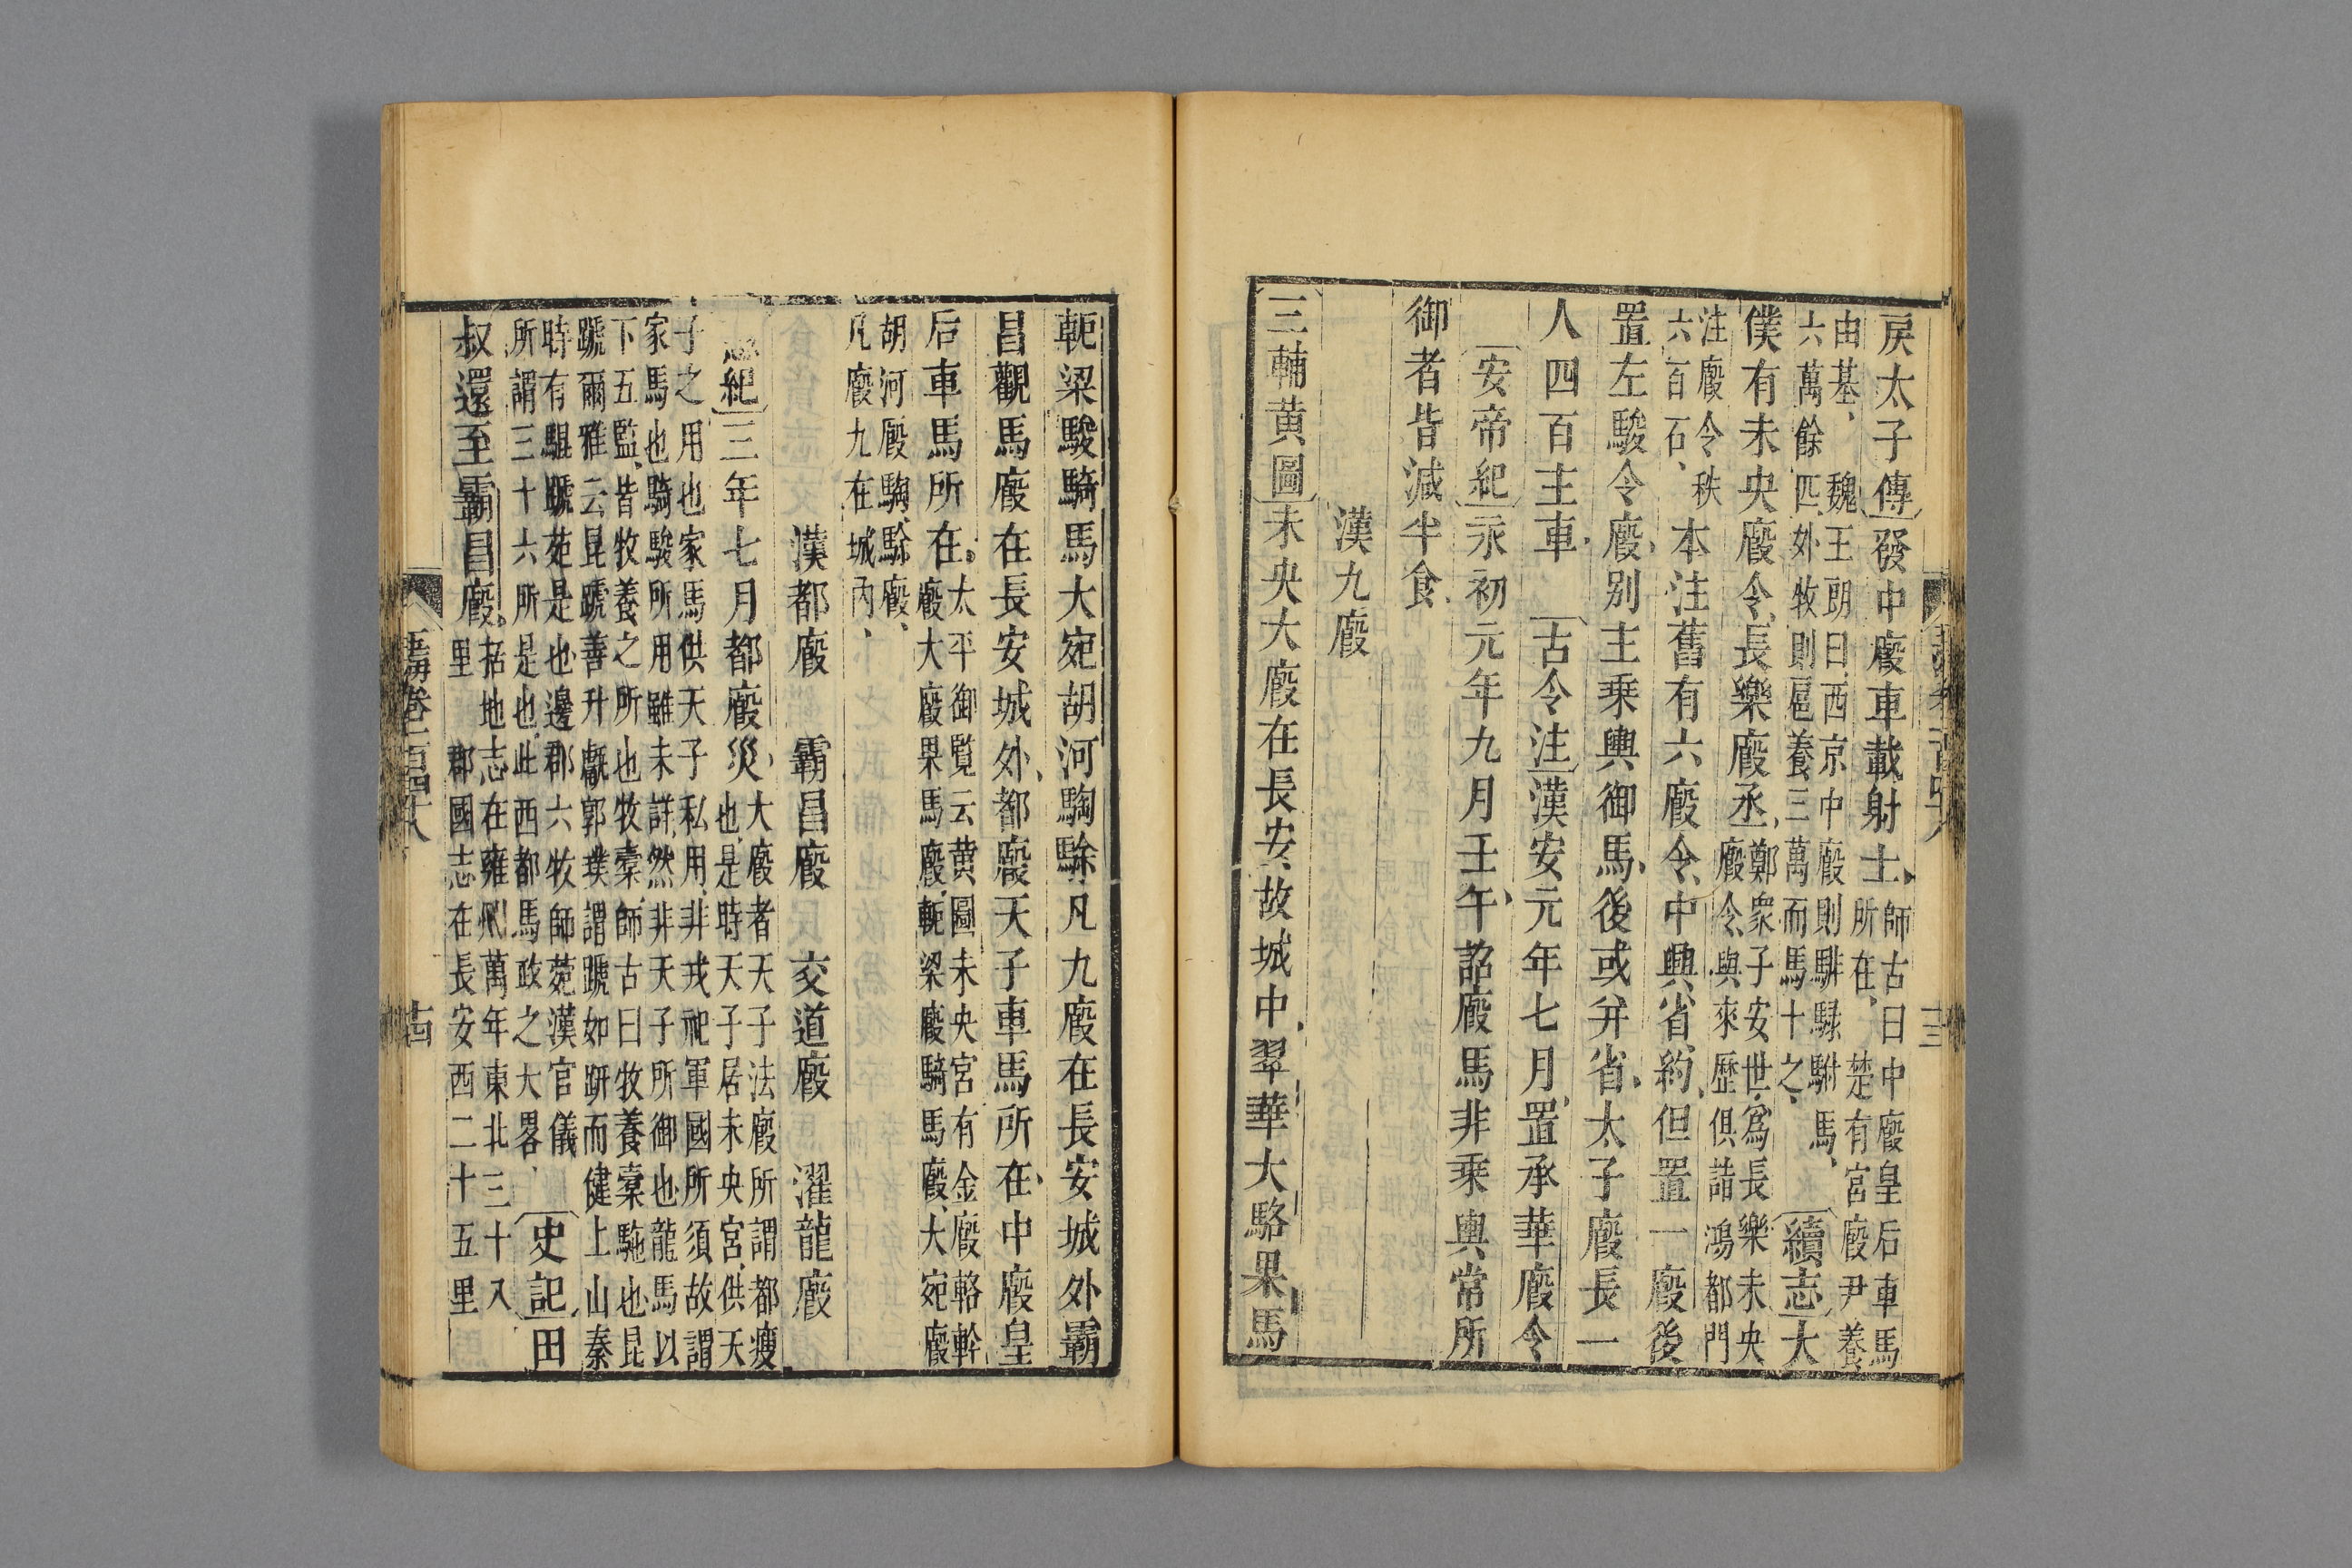 戾太子傳發中廄車載射士師古曰中廄皇后車馬
所在楚有宮廄尹養
由基魏王朗曰西京中廄則騑騄駙馬
六萬餘匹外牧則扈養三萬而馬十之續志大
僕有未央廄令長樂廄丞鄭衆子安世爲長樂未央
廄令與來歷俱詣鴻都門
注廄令秩
六百石本注舊有六廄令中興省約但置一廄後
置左駿令廄别主乗輿御馬後或并省太子廄長一
人四百主車古今注漢安元年七月置承華廄令
安帝紀永初元年九月壬午詔廄馬非乗輿常所
御者皆減半食
漢九廄
三輔黃圖未央大廄在長安故城中翠華大駱果馬
軛梁駿騎馬大宛胡河騊駼凡九廄在長安城外霸
昌觀馬廄在長安城外都廄天子車馬所在中廄皇
后車馬所在太平御覽云黃圖未央宮有金廄輅軨
廄大廄果馬廄軛梁廄騎馬廄大宛廄
胡河廄騊駼廄
凡廄九在城內
漢都廄 霸昌廄 交道廄 濯龍廄
紀三年七月都廄災大廄者天子法廄所謂都瘦
也是時天子居未央宮供天
子之用也家馬供天子私用非戎祀軍國所須故謂
家馬也騎駿所用雖未詳然非天子所御也龍馬以
下五監皆牧養之所也牧橐師古曰牧養橐駞也昆
蹏爾雅云昆蹏善升甗郭璞謂蹏如趼而健上山秦
時有騉蹏苑是也邊郡六牧師苑漢官儀
所謂三十六所是也此西都馬政之大畧史記田
叔還至霸昌廄括地志在雍州萬年東北三十八
里郡國志在長安西二十五里
十三
十四